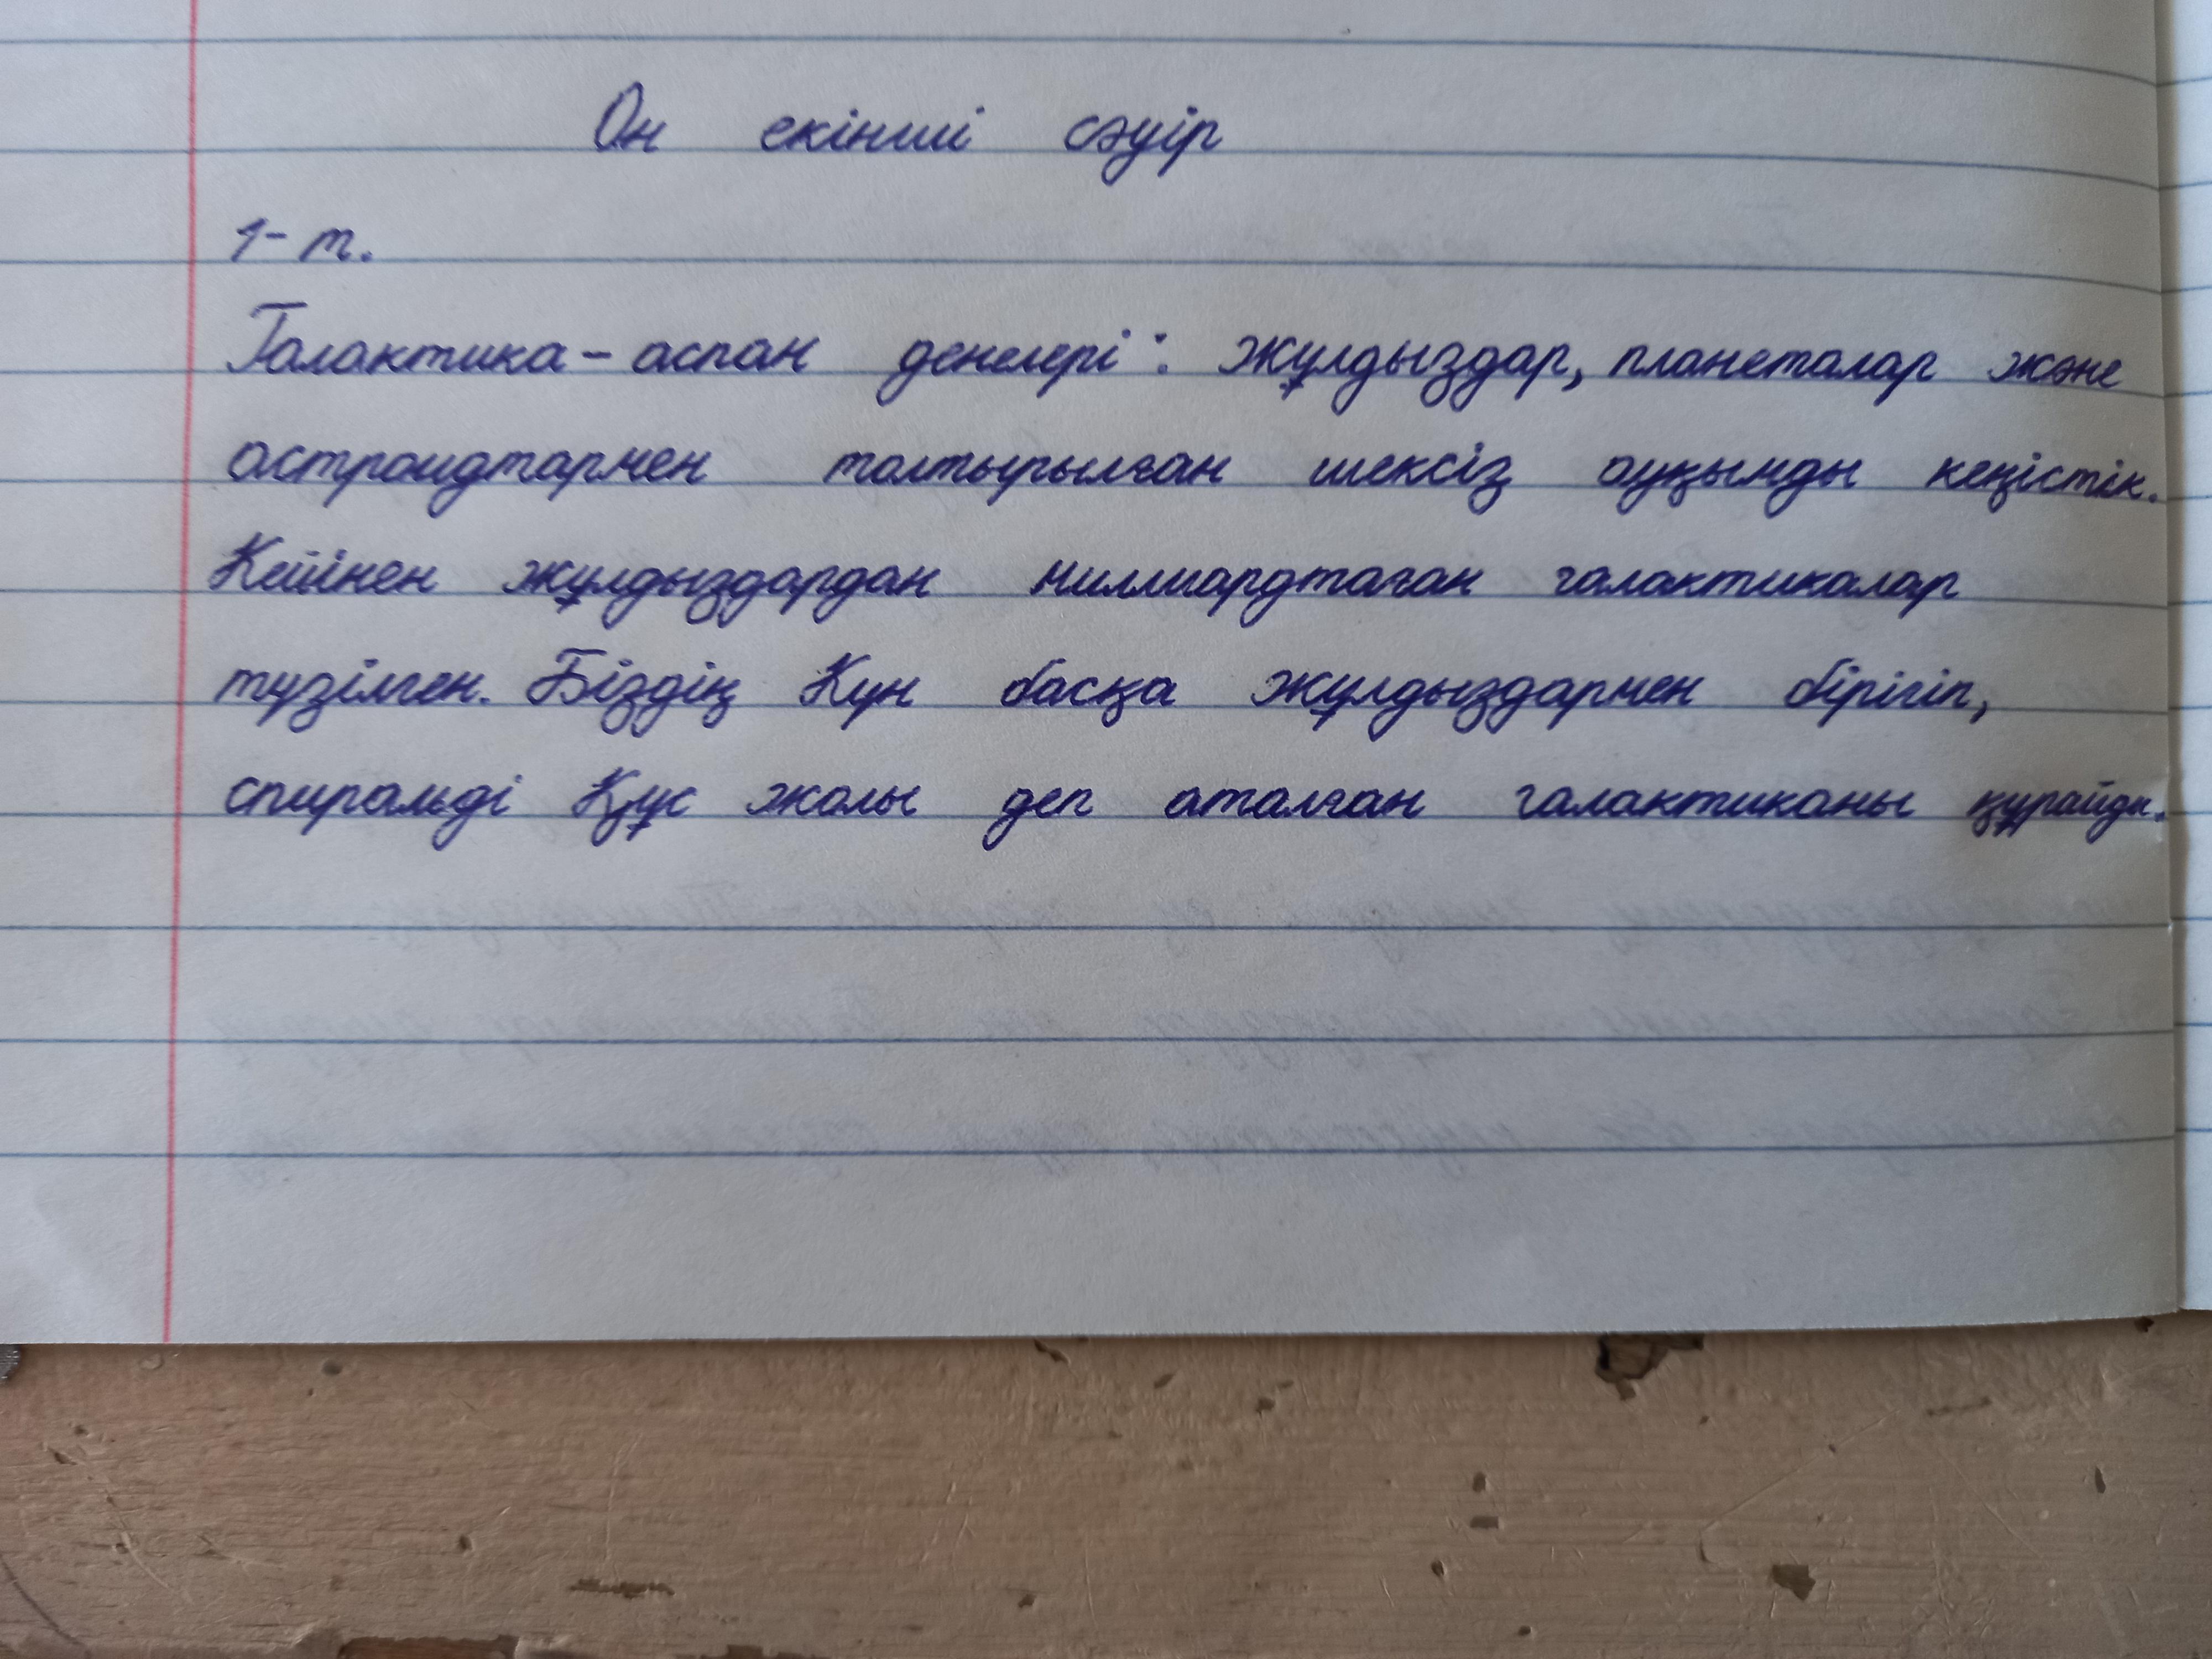 Он екінші сәуір
1-т.
Галактика - аспан денелері: жұлдыздар, планеталар және
астроидтармен толтырылған шексіз ауқымды кеңістік.
Кейінен жұлдыздардан миллиардтаған галактикалар
түзілген. Біздің Күн басқа жұлдыздармен бірігіп,
спиральді Құс жолы деп аталған галактиканы құрайды.